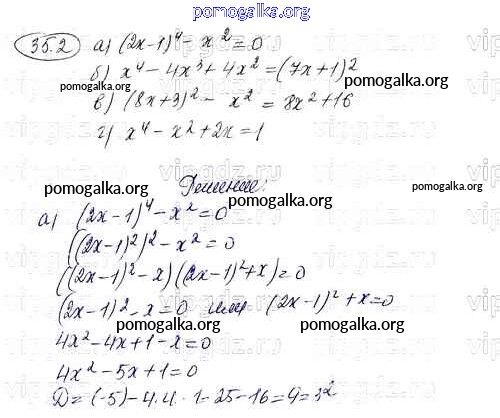 pomogalka.org
35.2 а) (2x-1)⁴ - x² = 0
б) x⁴ - 4x³ + 4x² = (7x+1)²
pomogalka.org pomogalka.org
в) (8x+3)² - x² = 8x² + 16
pomogalka.org
г) x⁴ - x² + 2x = 1
Решение:
pomogalka.org pomogalka.org
а) (2x-1)⁴ - x² = 0
((2x-1)²)² - x² = 0
((2x-1)² - x)((2x-1)² + x) = 0
(2x-1)² - x = 0 или (2x-1)² + x = 0
pomogalka.org pomogalka.org
4x² - 4x + 1 - x = 0
4x² - 5x + 1 = 0
pomogalka.org
D = (-5) - 4.4 · 1 - 25 - 16 = 9 = 3²